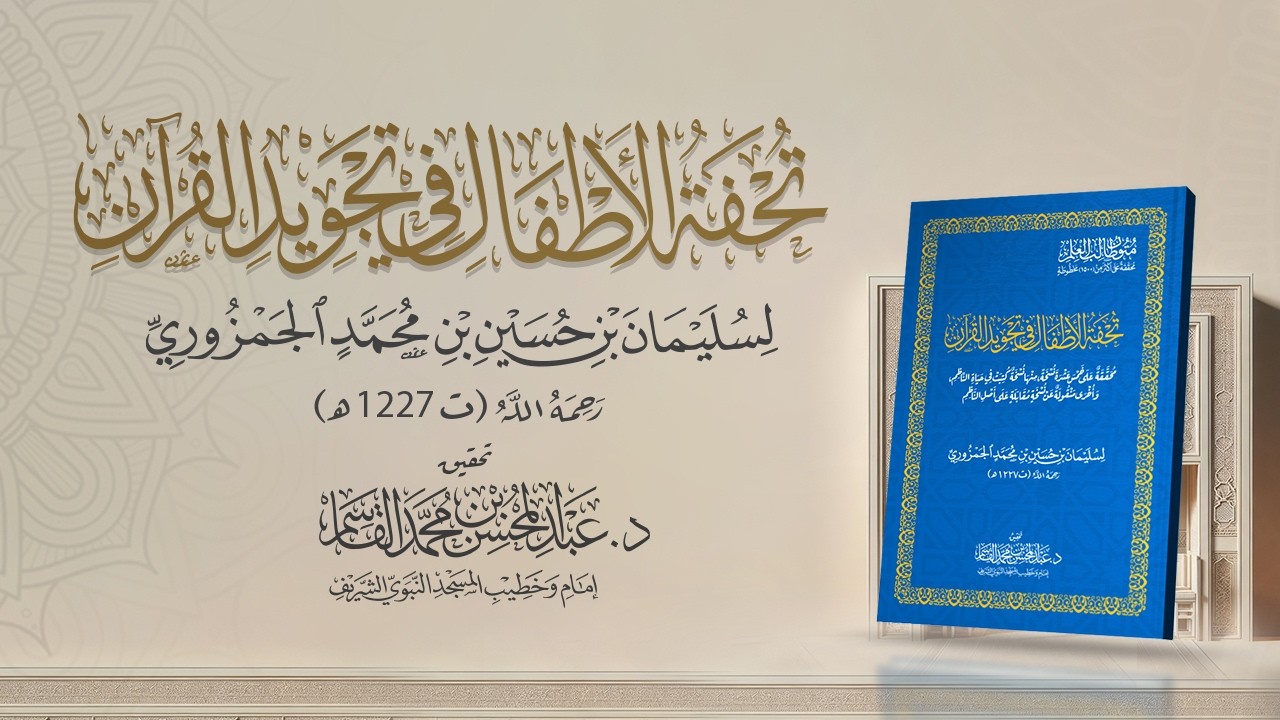 تُحْفَةُ الْأَطْفَالِ فِي تَجْوِيدِ الْقُرْآنِ
لِسُلَيْمَانَ بْنِ حُسَيْنِ بْنِ مُحَمَّدٍ ٱلْجَمْزُورِيِّ
رَحِمَهُ اللَّهُ (ت 1227 هـ)
تحقيق
د. عَبْدُ الْمُحْسِنِ بْنُ مُحَمَّدٍ الْقَاسِمُ
إِمَامُ وَخَطِيبُ الْمَسْجِدِ النَّبَوِيِّ الشَّرِيفِ
مُتُونُ طَالِبِ الْعِلْمِ
مُحَقَّقَةٌ عَلَى أَكْثَرَ مِنْ (١٥٠٠) مَخْطُوطَةٍ
تُحْفَةُ الْأَطْفَالِ فِي تَجْوِيدِ الْقُرْآنِ
مُحَقَّقَةٌ عَلَى خَمْسَ عَشْرَةَ نُسْخَةً، مِنْهَا نُسْخَةٌ كُتِبَتْ فِي حَيَاةِ النَّاظِمِ،
وَأُخْرَى مَنْقُولَةٌ عَنْ نُسْخَةٍ مُقَابَلَةٍ عَلَى أَصْلِ النَّاظِمِ
لِسُلَيْمَانَ بْنِ حُسَيْنِ بْنِ مُحَمَّدٍ ٱلْجَمْزُورِيِّ
رَحِمَهُ اللَّهُ (ت ١٢٢٧ هـ)
تحقيق
د. عَبْدُ الْمُحْسِنِ بْنُ مُحَمَّدٍ الْقَاسِمُ
إِمَامُ وَخَطِيبُ الْمَسْجِدِ النَّبَوِيِّ الشَّرِيفِ